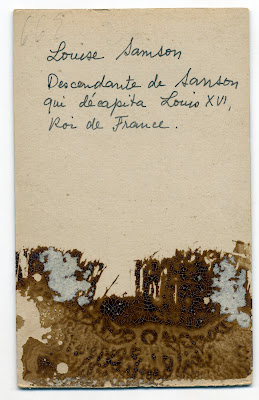 Louise Samson
Descendante de Sanson
qui décapita Louis XVI,
Roi de France.